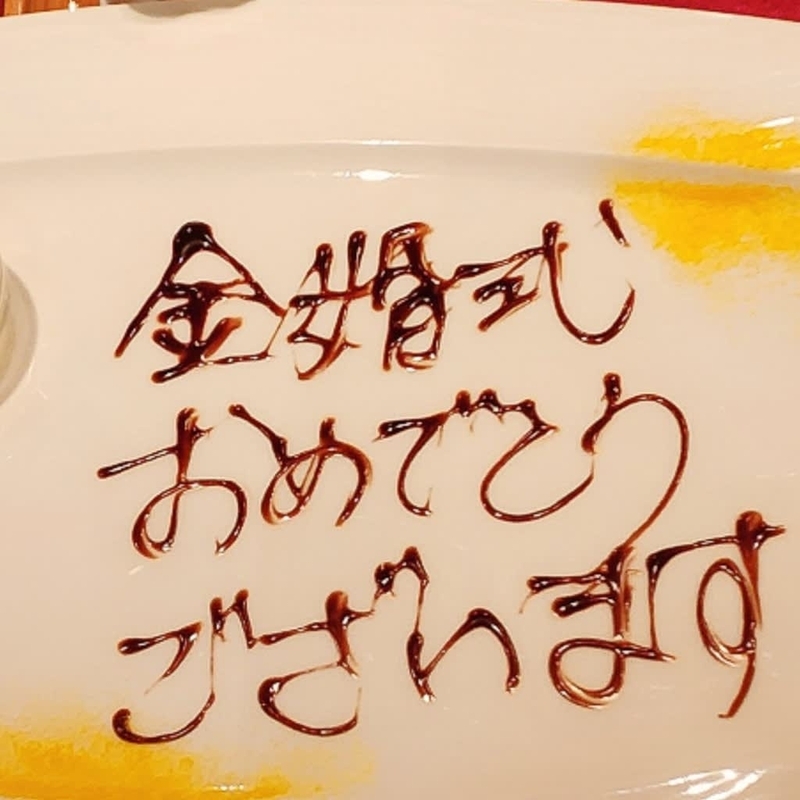 金婚式
おめでとう
ございます